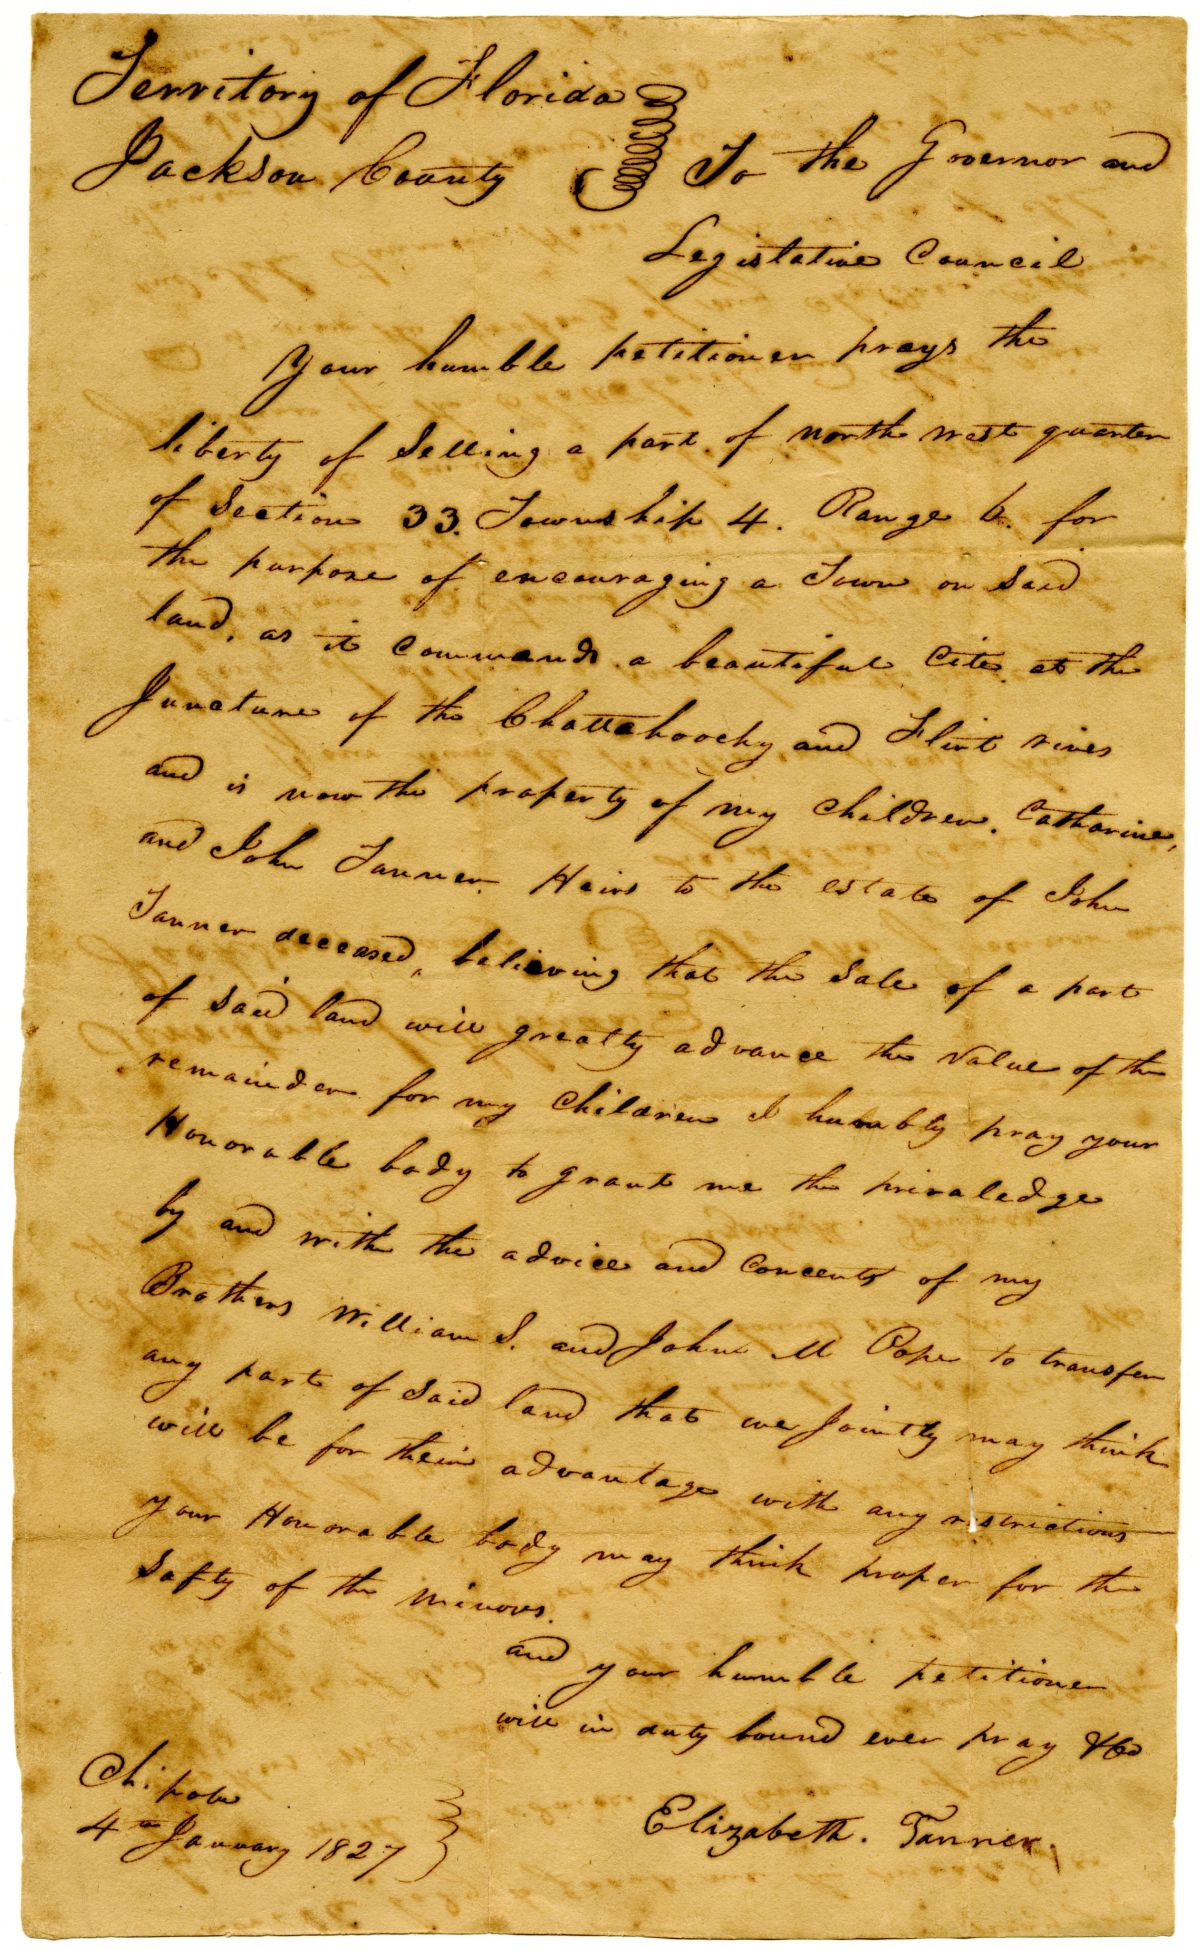 Territory of Florida
Jackson County To the Governor and
Legislative Council
Your humble petitioner prays the
liberty of Selling a part of north west quarter
of Section 33. Township 4. Range 6. for
the purpose of encouraging a Town on Said
land, as it commands a beautiful Cite at the
Juncture of the Chattahoochy and Flint rives
and is now the property of my children. Catharine,
and John Tanner. Heirs to the estate of John
Tanner deceased, believing that the Sale of a part
of Said land will greatly advance the value of the
remainder for my Children I humbly pray your
Honorable body to grant me the privaledge
by and with the advice and Concents of my
Brothers William S. and John M Pope to transfer
any part of Said land that we Jointly may think
will be for their advantage with any restrictions
your Honorable body may think proper for the
Safty of the minors.
and your humble petitioner
will in duty bound ever pray &c
Chipola
4th January 1827
Elizabeth. Tanner.